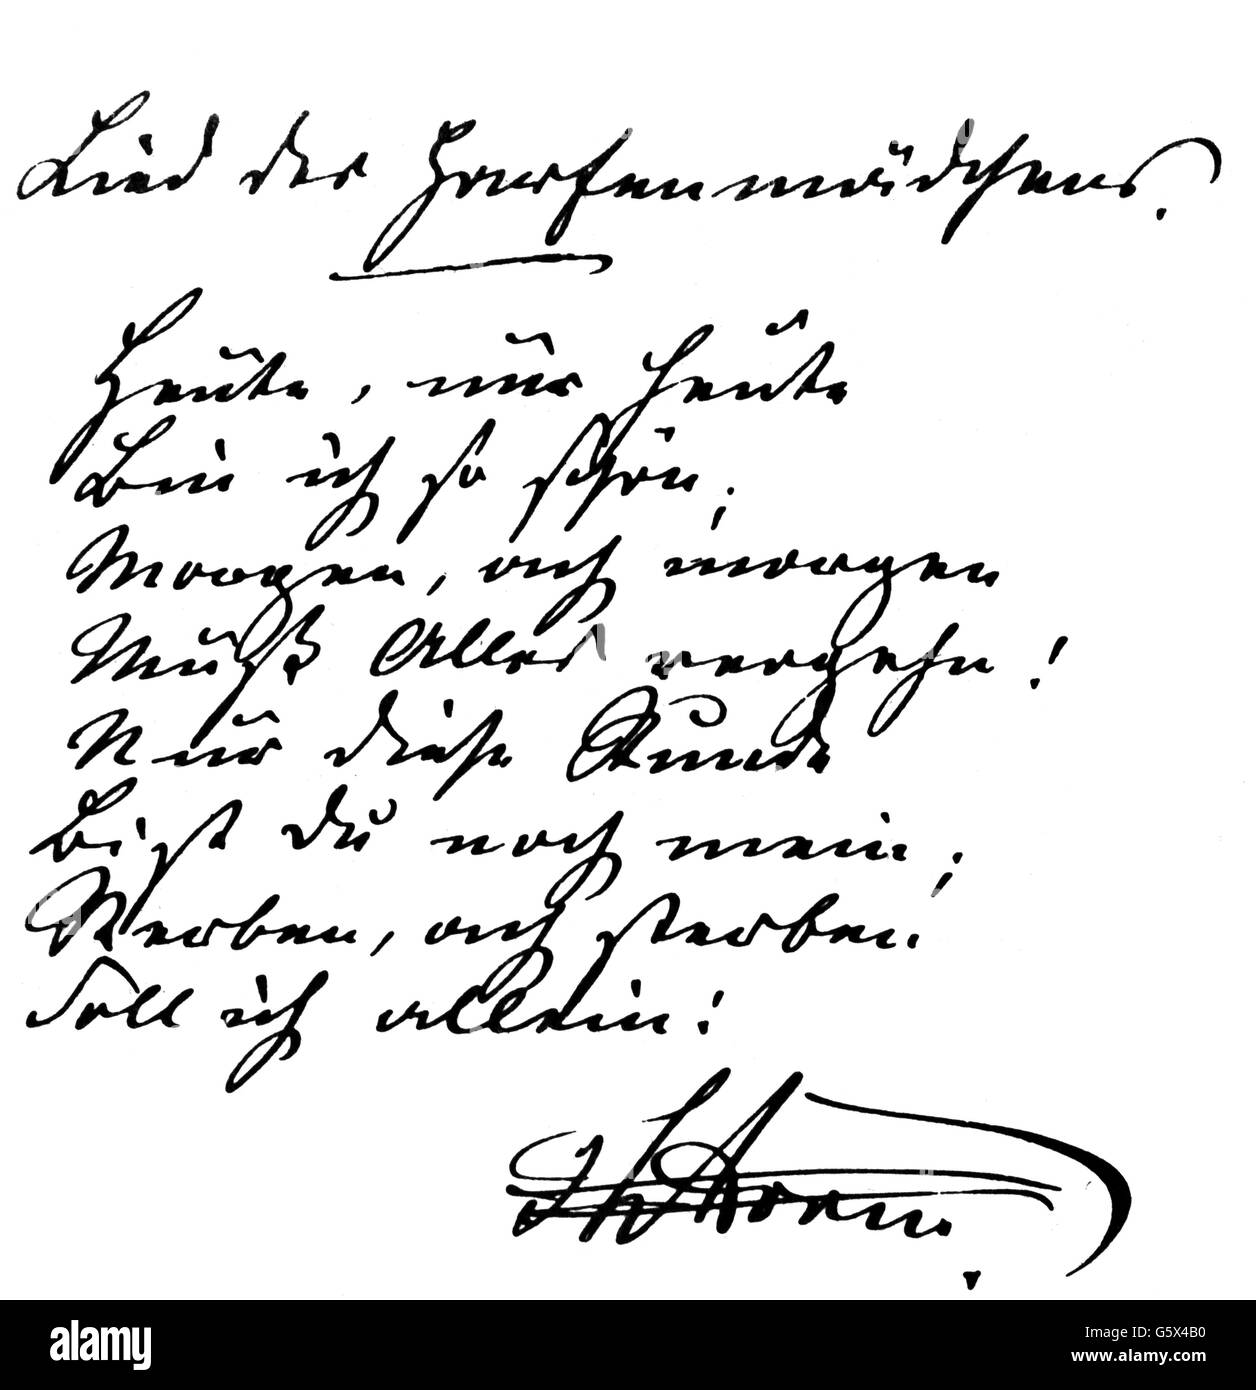 Lied des Harfenmädchens.
Heute, nur heute
Bin ich so schön;
Morgen, ach morgen
Muß Alles vergehn!
Nur diese Stunde
Bist du noch mein;
Sterben, ach sterben
Soll ich allein!
ThStorm.
alamy
Image ID: G5X4B0
www.alamy.com